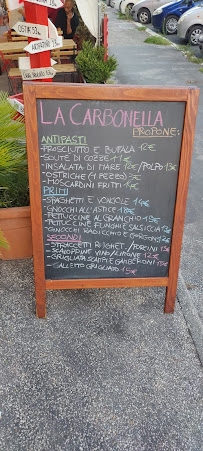 OSTIA
LA CARBONELLA
PROPONE:
ANTIPASTI
-PROSCIUTTO E BUFALA 14€
-SOUTÈ DI COZZE 11€
-INSALATA DI MARE 12€/POLPO 13€
-OSTRICHE (1 PEZZO) 3€
-MOSCARDINI FRITTI
PRIMI
-SPAGHETTI E VONGOLE
-GNOCCHI ALL'ASTICE
-FETTUCCINE AL GRANCHIO 13€
-FETTUCCINE FUNGHI E SALSICCIA 12€
-GNOCCHI RADICCHIO E GORGONZ. 12€
SECONDI
-STRACCETTI RUGHET./PORCINI 13€
-SCALOPPINE VINO/LIMONE 12€
-GRIGLIATA SCAMPI E GAMBERONI
-GALLETTO GRIGLIATO 15€